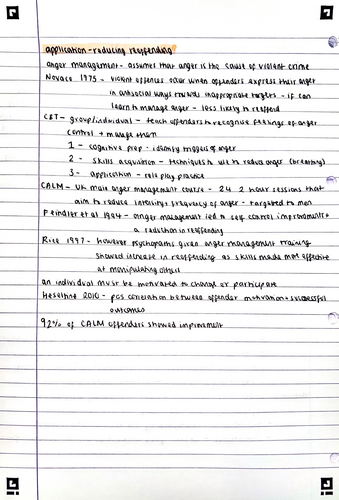 application - reducing reoffending
anger management - assumes that anger is the cause of violent crime
Novaco 1975 - violent offences occur when offenders express their anger
in antisocial ways towards inappropriate targets - if can
learn to manage anger - less likely to reoffend
CBT - group/individual - teach offenders to recognise feelings of anger
control + manage them
1 - cognitive prep - identify triggers of anger
2 - skills acquisition - techniques to use to reduce anger (breathing)
3 - application - role play practice
CALM - UK main anger management course - 24 2 hour sessions that
aim to reduce intensity + frequency of anger - targeted to men
Feindler et al 1984 - anger management led to self control improvements +
a reduction in reoffending
Rice 1997 - however psychopaths given anger management training
showed increase in reoffending as skills made them more effective
at manipulating others
an individual must be motivated to change or participate
Heseltine 2010 - pos correlation between offender motivation + successful
outcomes
92% of CALM offenders showed improvement